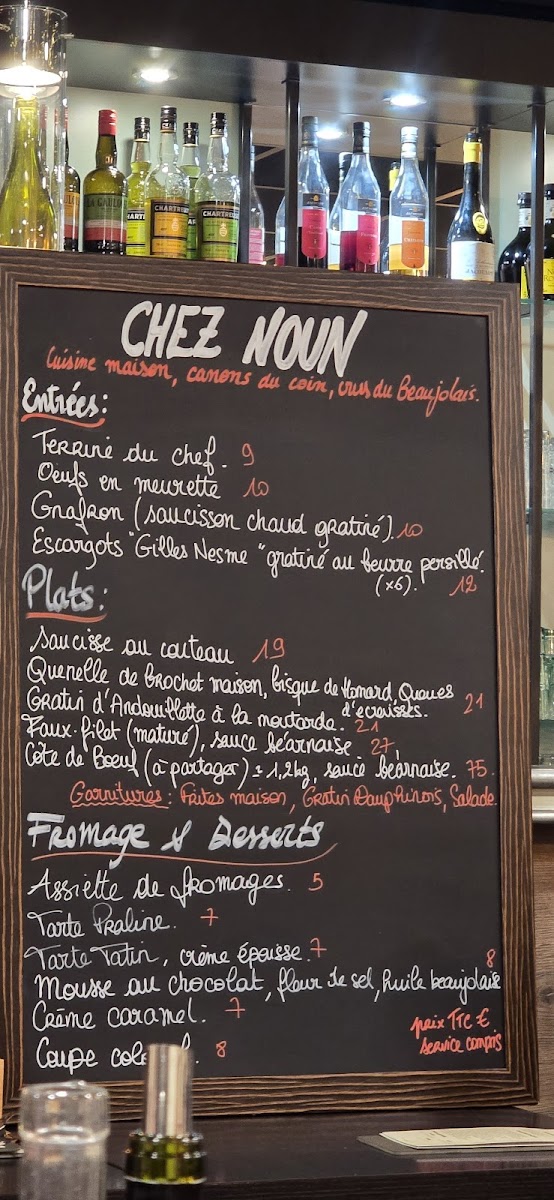 CHARTREUSE
CHARTREUSE
CHEZ NOUN
Cuisine maison, canons du coin, crus du Beaujolais.
Entrées:
Terrine du chef. 9
Oeufs en meurette 10
Gnafron (saucisson chaud gratiné). 10
Escargots "Gilles Nesme" gratiné au beurre persillé.
(x6). 12
Plats:
Saucisse au couteau 19
Quenelle de brochet maison, bisque de Homard, Queues
d'ecrevisses. 21
Gratin d'Andouillette à la moutarde. 21
Faux-filet (maturé), sauce béarnaise 27,
Côte de Boeuf (à partager) ± 1,2kg, sauce béarnaise. 75.
Garnitures: Frites maison, Gratin Dauphinois, Salade.
Fromage & Desserts
Assiette de fromages. 5
Tarte Praline. 7
Tarte Tatin, crème épaisse. 7
Mousse au chocolat, fleur de sel, huile beaujolaise 8
Crème caramel. 7
Coupe 8
prix TTC €
service compris